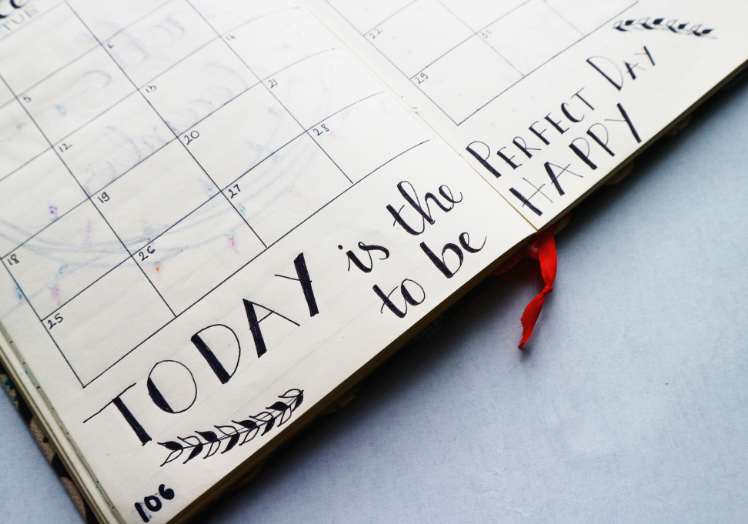 TUE
5 6
12 13 14
18 19 20 21 22
25 26 27 28 29
TODAY is the PERFECT DAY
to be HAPPY
106